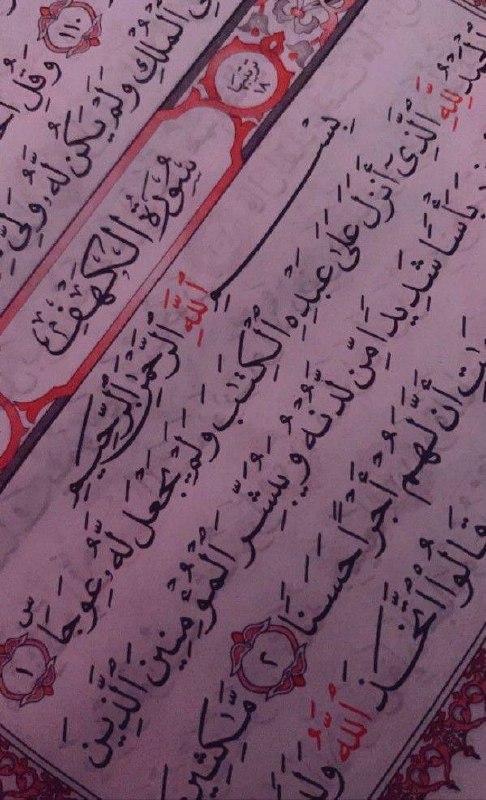 ١١٠ وَقُلِ
فِى ٱلْمُلْكِ وَلَمْ يَكُن لَّهُۥ وَلِىٌّ
ترتيبها ١٨
سُورَةُ الْكَهْفِ
بِسْمِ ٱللَّهِ ٱلرَّحْمَٰنِ ٱلرَّحِيمِ
ٱلْحَمْدُ لِلَّهِ ٱلَّذِىٓ أَنزَلَ عَلَىٰ عَبْدِهِ ٱلْكِتَٰبَ وَلَمْ يَجْعَل لَّهُۥ عِوَجَا ۜ ١
بَأْسًا شَدِيدًا مِّن لَّدُنْهُ وَيُبَشِّرَ ٱلْمُؤْمِنِينَ ٱلَّذِينَ
أَنَّ لَهُمْ أَجْرًا حَسَنًا ٢ مَّٰكِثِينَ
قَالُوا۟ ٱتَّخَذَ ٱللَّهُ